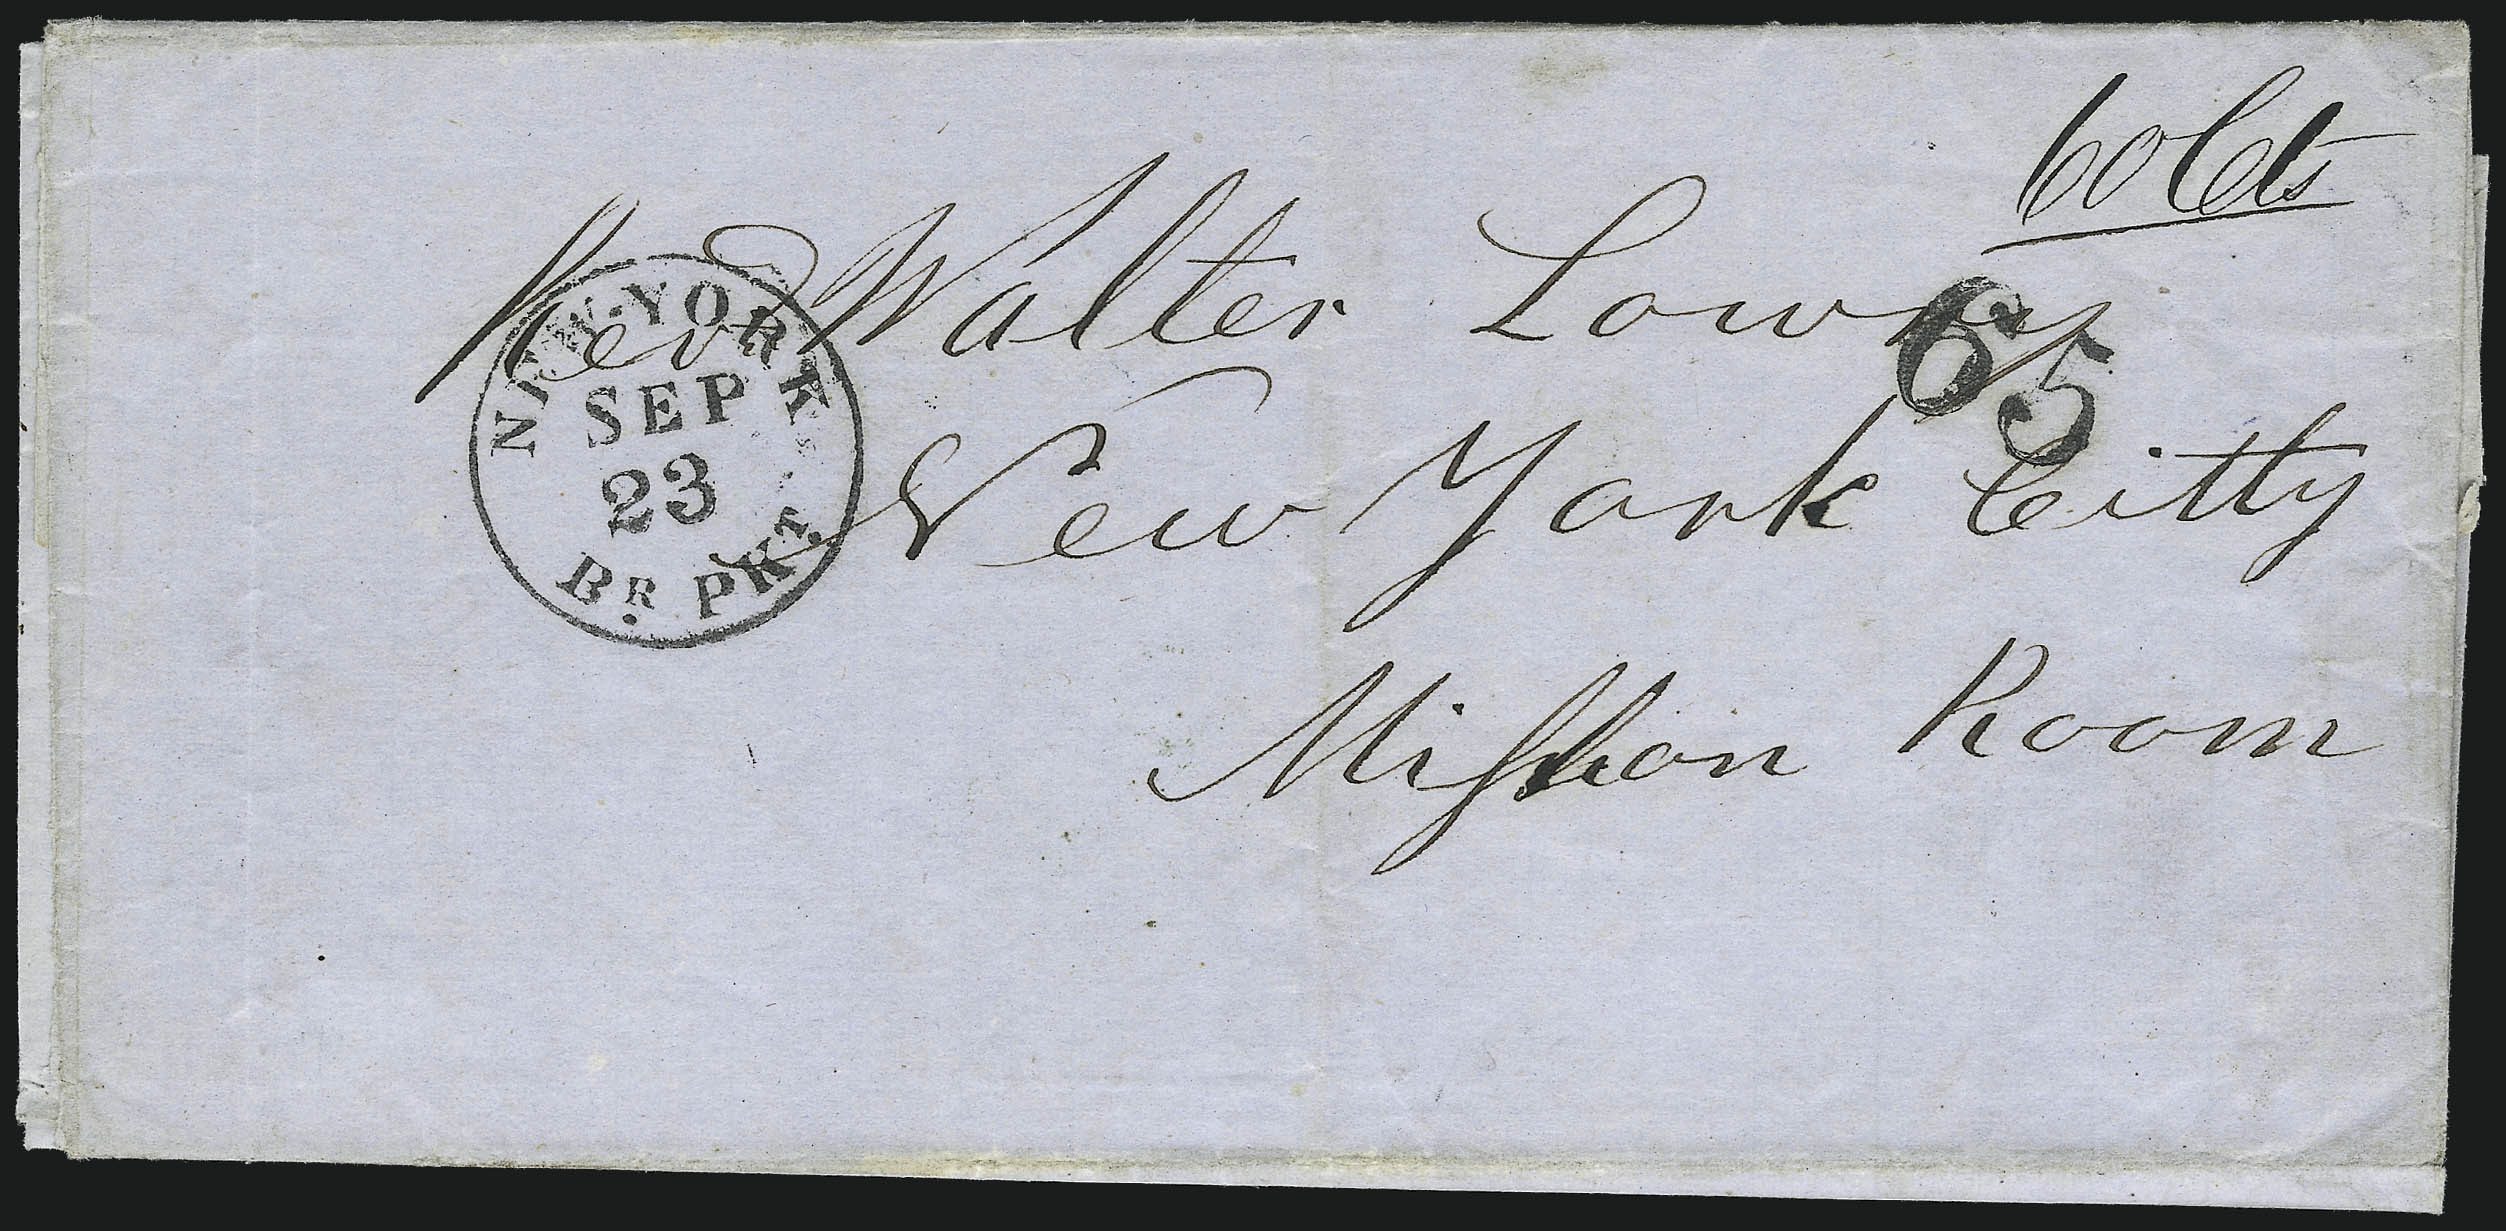 60 Cts
Rev Walter Lowry
65
NEW-YORK
SEP
23
BR. PKT.
New York Citty
Mission Room